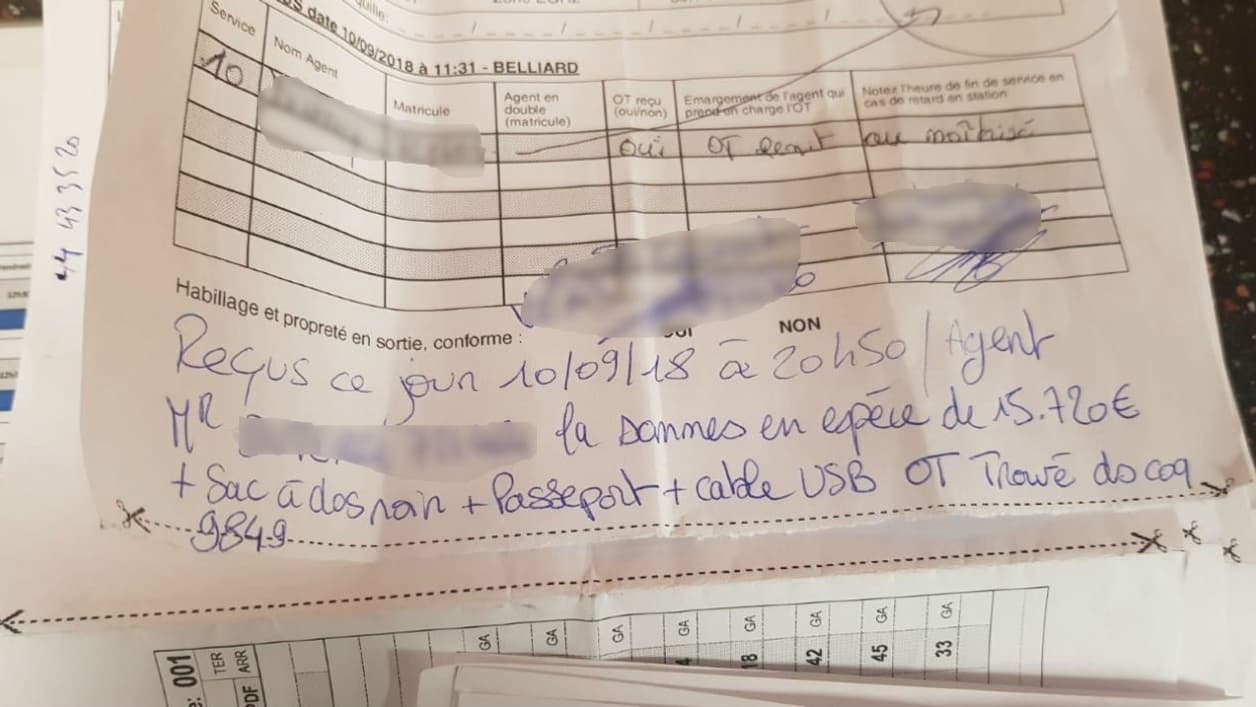 date 10/09/2018 à 11:31 - BELLIARD
Service
Nom Agent
Matricule
Agent en double (matricule)
OT reçu (oui/non)
Emargement de l'agent qui prend en charge l'OT
Notez l'heure de fin de service en cas de retard en station
10
oui OT remit au
44 43 35 20
Habillage et propreté en sortie, conforme :
NON
Reçus ce jour 10/09/18 à 20h50 / Agent
MR
la sommes en espéce de 15.720€
+ Sac à dos noir + Passeport + cable USB OT Trouvé ds coq
9849
001
TER
ARR
GA GA GA GA GA GA GA GA
18 42 45 33